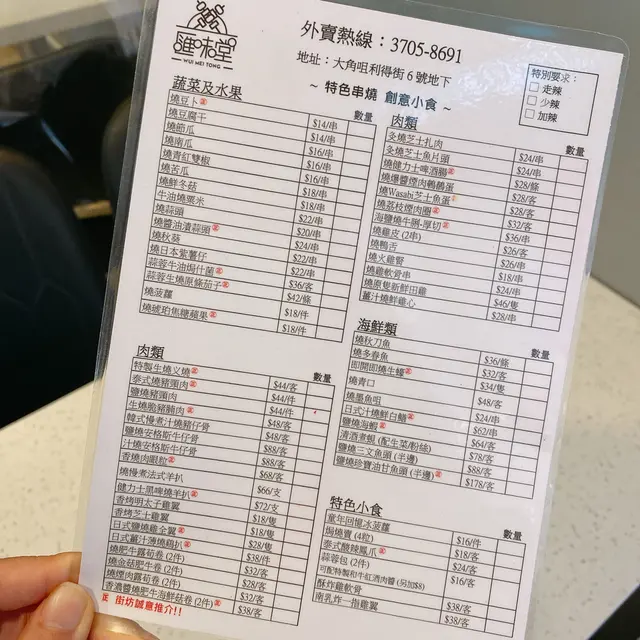 匯味堂
WUI MEI TONG
外賣熱線：3705-8691
地址：大角咀利得街6號地下
~ 特色串燒 創意小食 ~
特別要求：
走辣
少辣
加辣
蔬菜及水果 數量
燒豆卜 $14/串
燒豆腐干 $14/串
燒節瓜 $16/串
燒南瓜 $16/串
燒青紅雙椒 $16/串
燒苦瓜 $18/串
燒鮮冬菇 $18/串
牛油燒粟米 $22/串
燒蒜頭 $20/串
燒醬油漬蒜頭 $24/串
燒秋葵 $22/串
燒日本紫薯仔 $22/串
蒜蓉牛油焗什菌 $36/客
蒜蓉生燒原條茄子 $42/條
燒菠蘿 $18/件
燒琥珀焦糖蘋果 $18/件
肉類 數量
特製生燒义燒 $44/客
泰式燒豬頸肉 $44/件
鹽燒豬頸肉 $44/件
生燒脆豬腩肉 $48/客
韓式慢煮汁燒豬仔骨 $48/客
鹽燒安格斯牛仔骨 $88/客
汁燒安格斯牛仔骨 $88/客
香燒肉眼粒 $68/客
燒慢煮法式羊扒 $66/支
健力士黑啤燒羊扒 $72/支
香烤明太子雞翼 $18/隻
香烤芝士雞翼 $18/隻
日式鹽燒雞全翼 $28/隻
日式薑汁薄燒雞扒 $38/件
燒肥牛露荀卷 (2件) $32/客
燒金菇肥牛卷 (2件) $28/客
燒煙肉露荀卷 (2件) $32/客
香濃醬燒肥牛海鮮菇卷 (2件) $38/客
街坊誠意推介!!
肉類 數量
炙燒芝士扎肉 $24/串
炙燒芝士魚片頭 $24/串
燒健力士啤酒腸 $28/條
燒爆醬煙肉鵪鶉蛋 $28/客
燒Wasabi芝士魚蛋 $28/客
燒荔枝煙肉圈 $32/客
海鹽燒牛脷-厚切 $36/串
燒雞皮 (2串) $26/客
燒鴨舌 $26/串
燒火雞腎 $18/串
燒雞軟骨串 $24/串
燒原隻新鮮田雞 $46/隻
薑汁燒鮮雞心 $28/串
海鮮類 數量
燒秋刀魚 $36/條
燒多春魚 $32/客
即開即燒生蠔 $34/隻
燒青口 $48/客
燒墨魚咀 $24/串
日式汁燒鮮白鱔 $62/串
鹽燒海蝦 $64/客
清酒煮蜆 (配生菜/粉絲) $78/客
鹽燒三文魚頭 (半邊) $88/客
鹽燒珍寶油甘魚頭 (半邊) $178/客
特色小食 數量
童年回憶冰菠蘿 $16/件
焗燒賣 (4粒) $18/客
泰式酸辣鳳爪 $24/客
蒜蓉包 (2件) $16/客
可配特製和牛紅酒肉醬 (另加$8)
酥炸雞軟骨 $38/客
南乳炸一指雞翼 $38/客